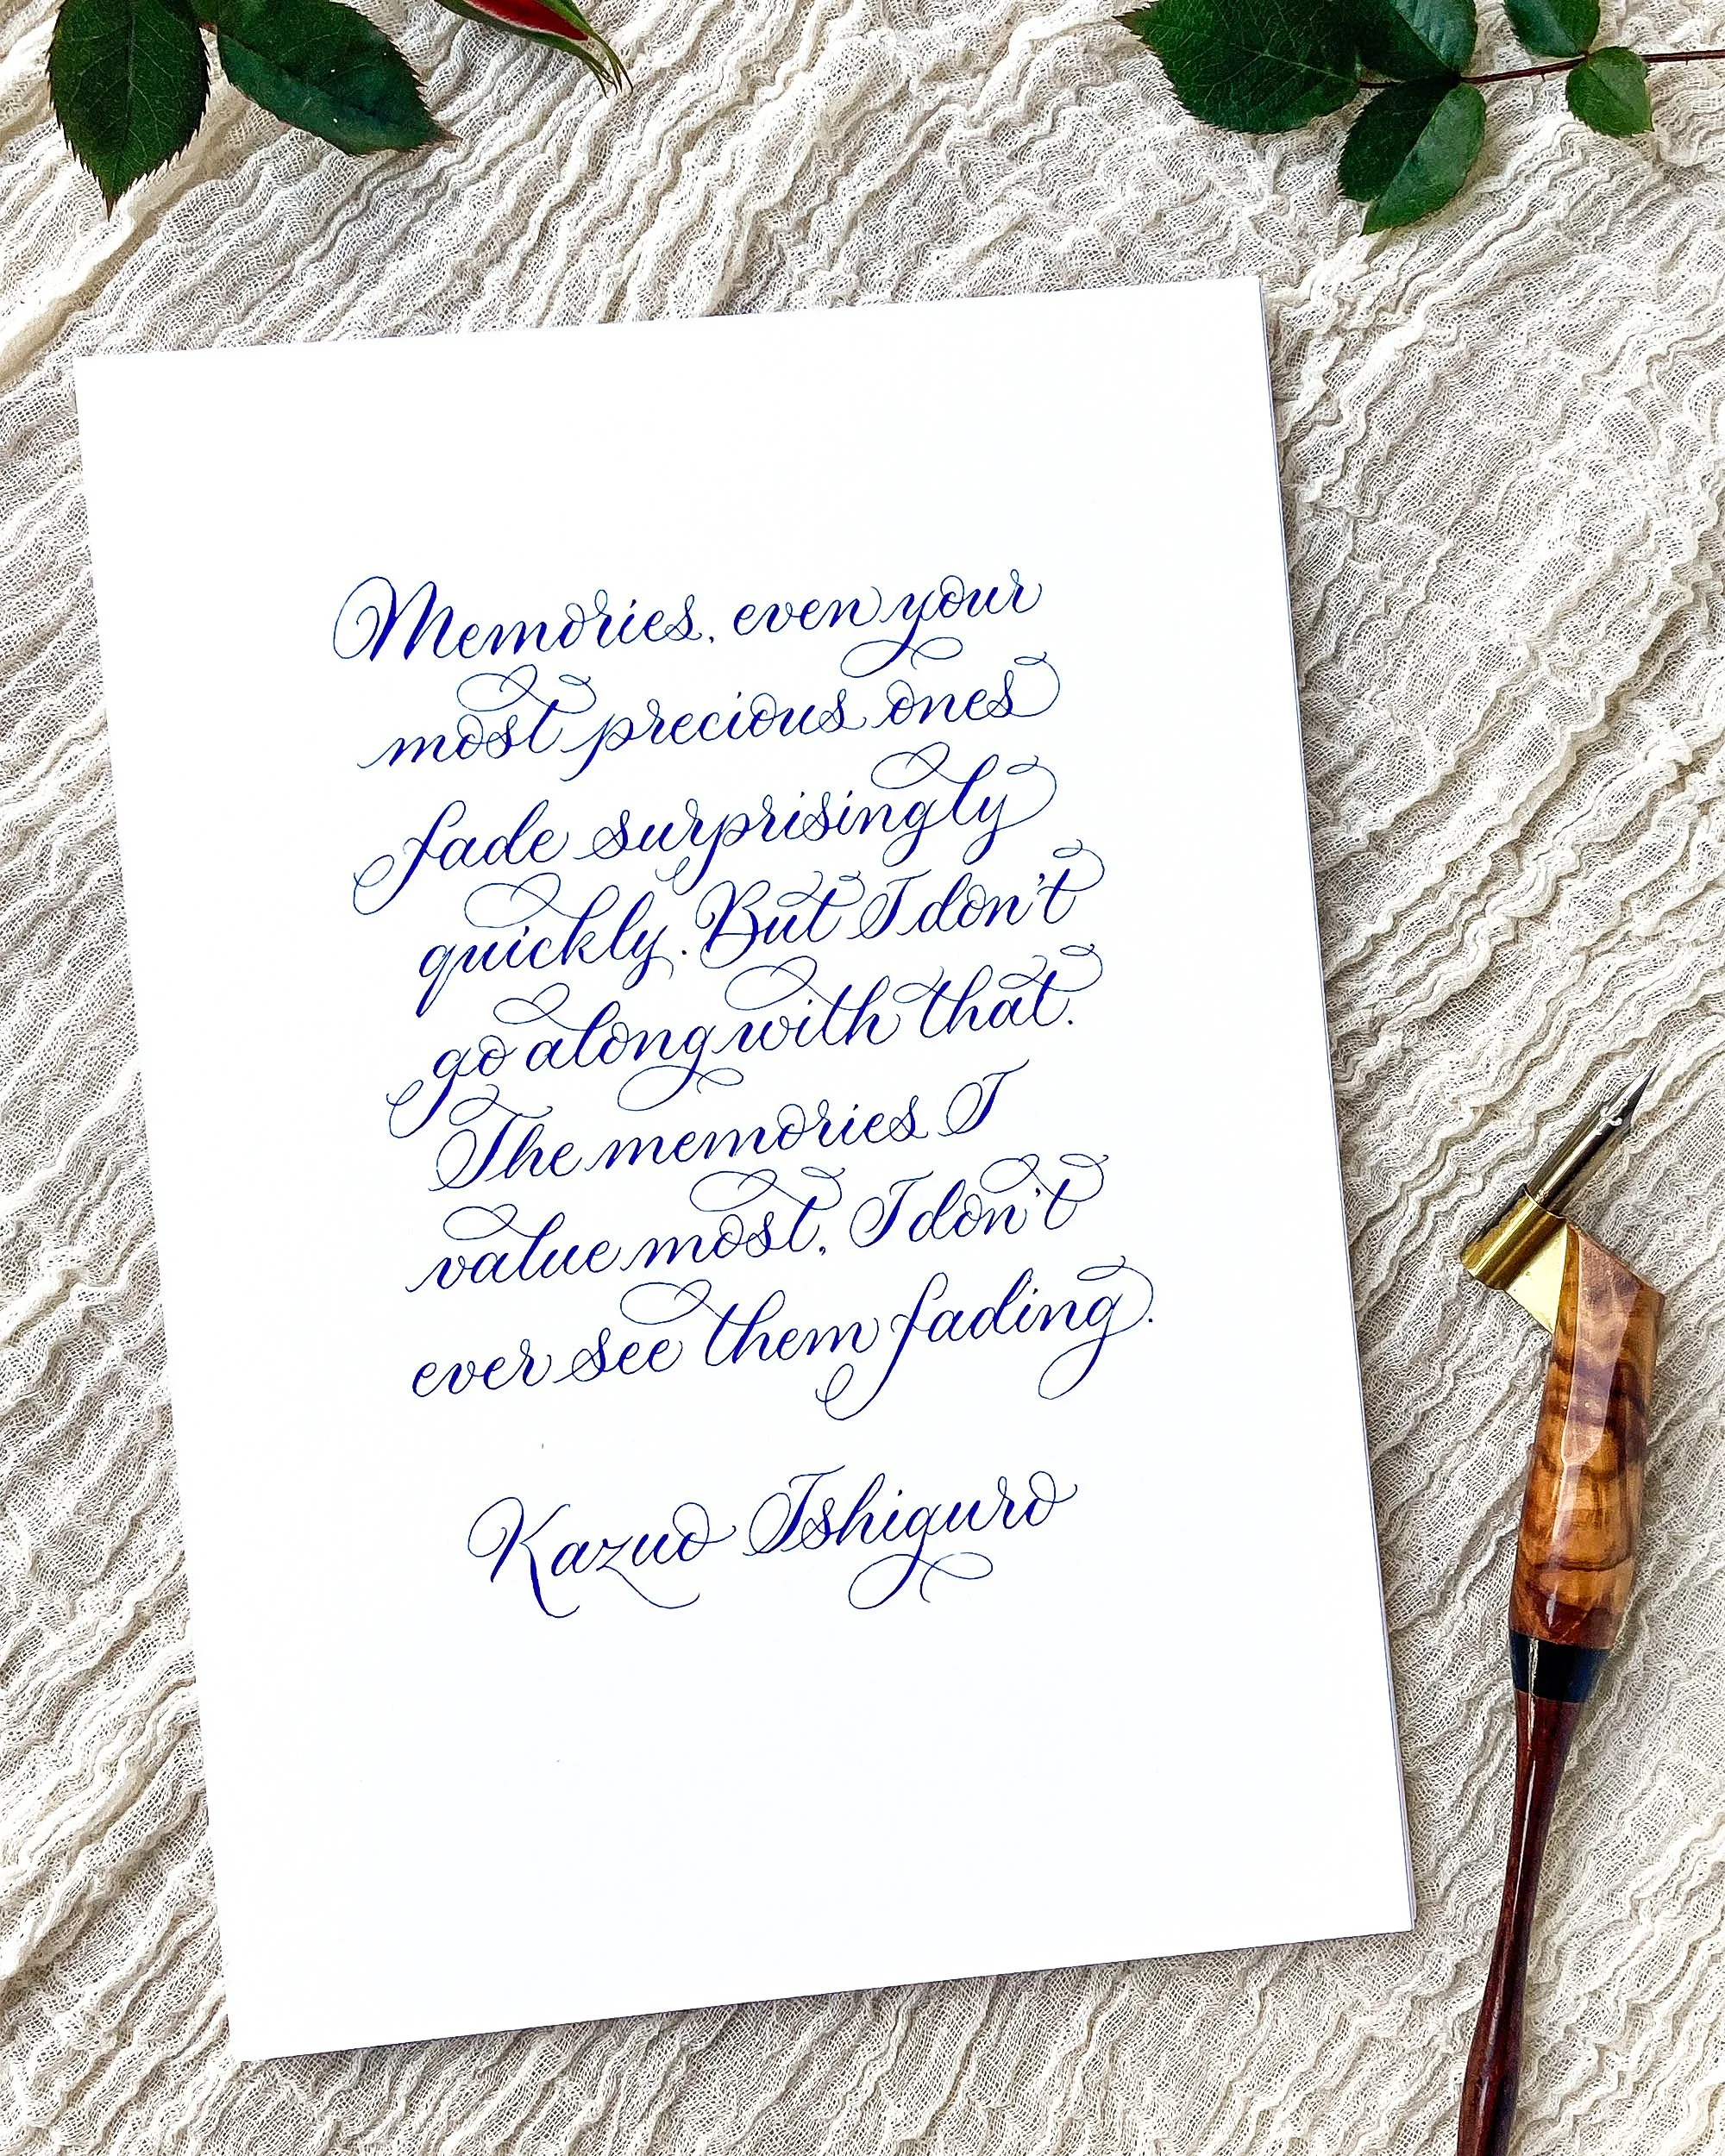 Memories, even your
most precious ones
fade surprisingly
quickly. But I don't
go along with that.
The memories I
value most, I don't
ever see them fading.
Kazuo Ishiguro